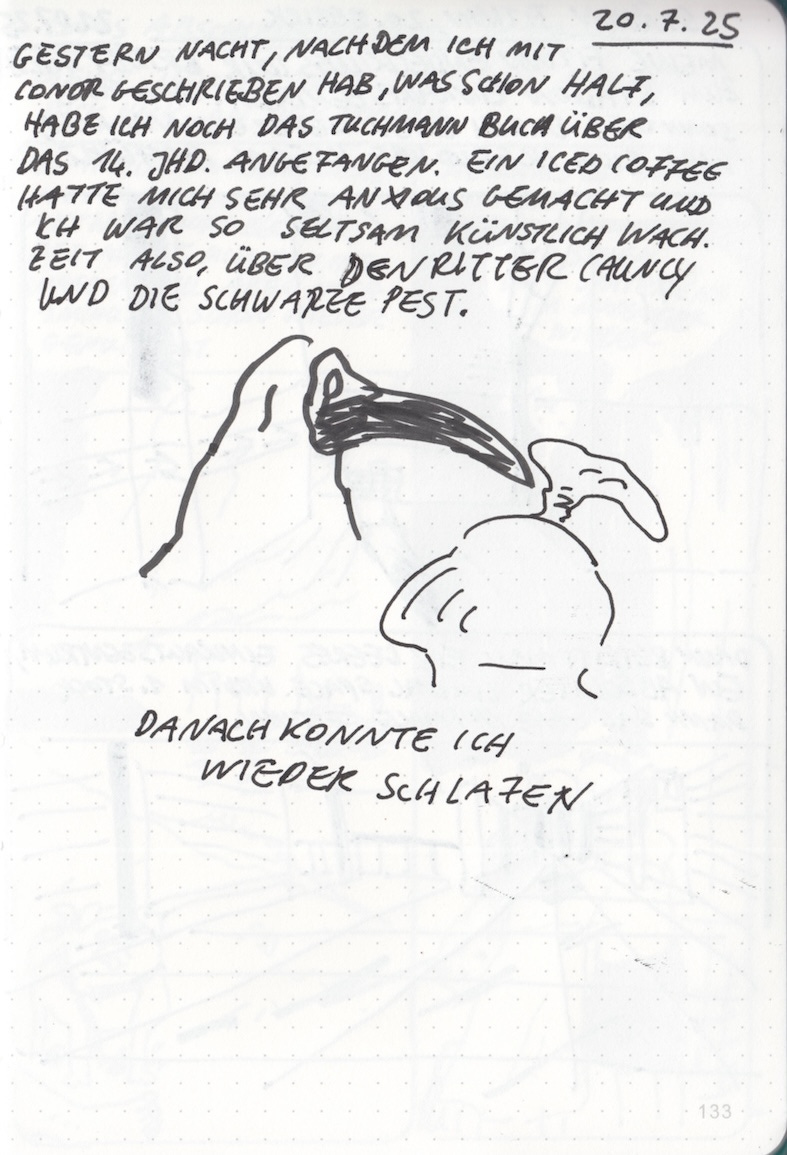 20.7.25
GESTERN NACHT, NACHDEM ICH MIT
CONOR GESCHRIEBEN HAB, WAS SCHON HALF,
HABE ICH NOCH DAS TUCHMANN BUCH ÜBER
DAS 14. JHD. ANGEFANGEN. EIN ICED COFFEE
HATTE MICH SEHR ANXIOUS GEMACHT UND
ICH WAR SO SELTSAM KÜNSTLICH WACH.
ZEIT ALSO, ÜBER DEN RITTER COUNCY
UND DIE SCHWARZE PEST.
DANACH KONNTE ICH
WIEDER SCHLAFEN
133